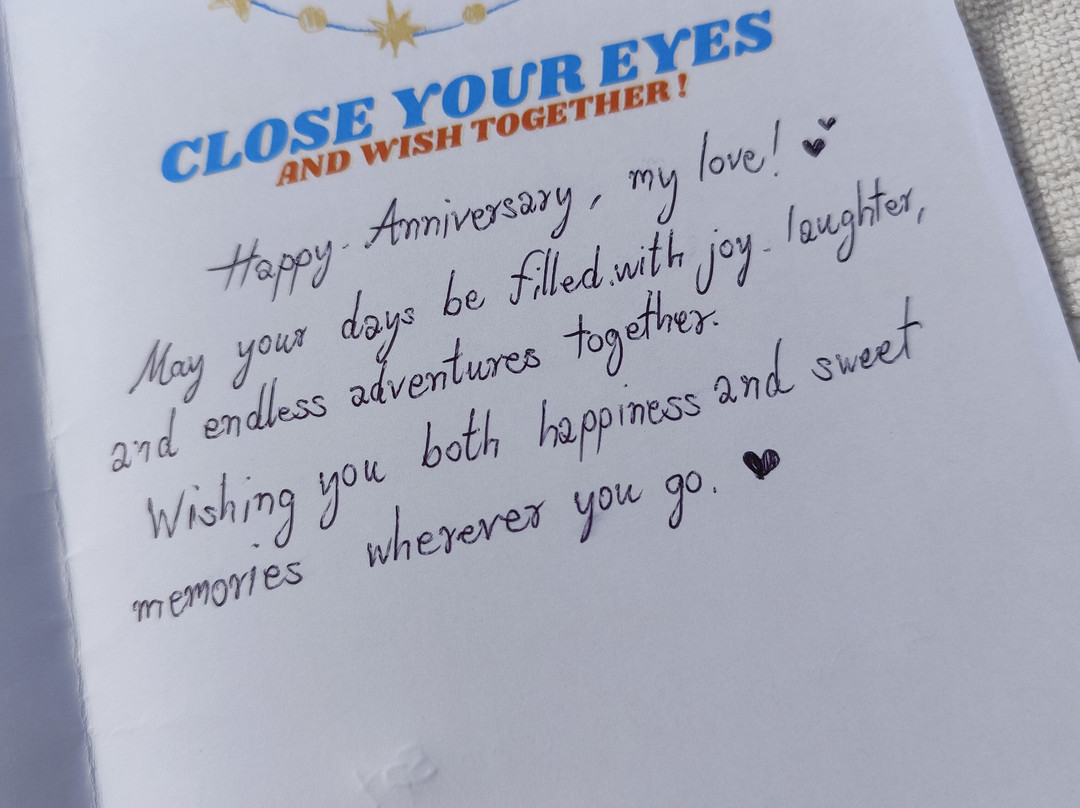 CLOSE YOUR EYES
AND WISH TOGETHER!
Happy Anniversary, my love! 💕
May your days be filled with joy laughter,
and endless adventures together.
Wishing you both happiness and sweet
memories wherever you go. 🖤